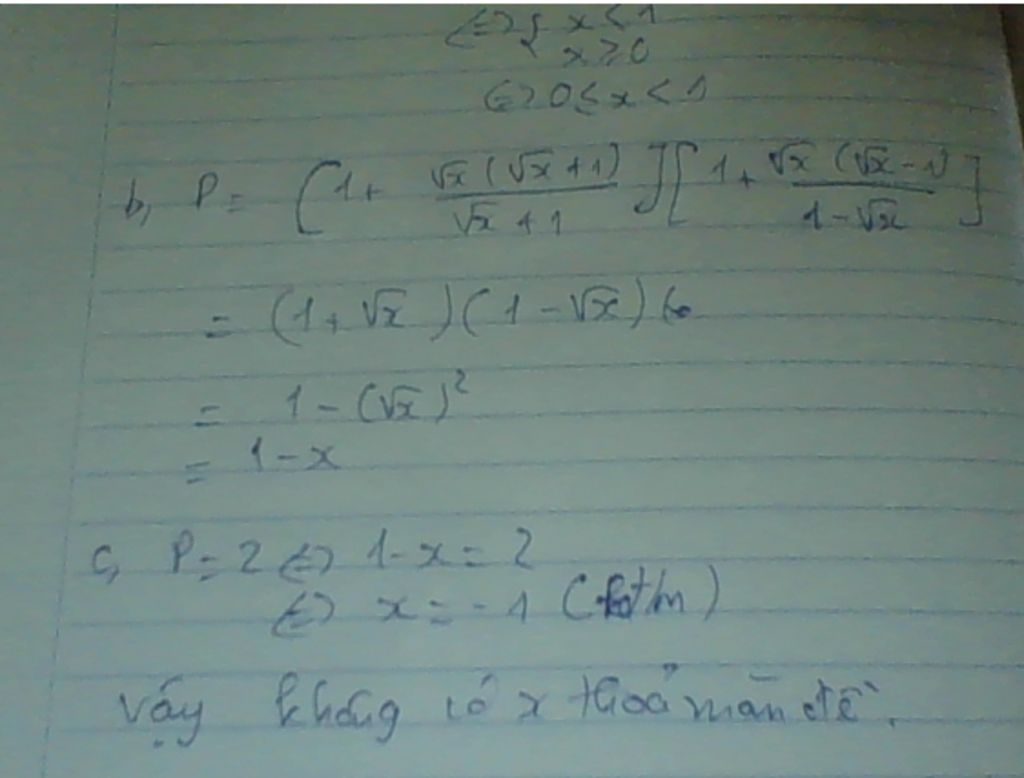 ⇔ { x < 1
x ≥ 0
⇔ 0 ≤ x < 1
b, P = [1 + √x(√x + 1)/(√x + 1)][1 + √x(√x - 1)/(1 - √x)]
= (1 + √x)(1 - √x)
= 1 - (√x)²
= 1 - x
c, P = 2 ⇔ 1 - x = 2
⇔ x = -1 (ko t/m)
Vậy không có x thoả mãn đề.